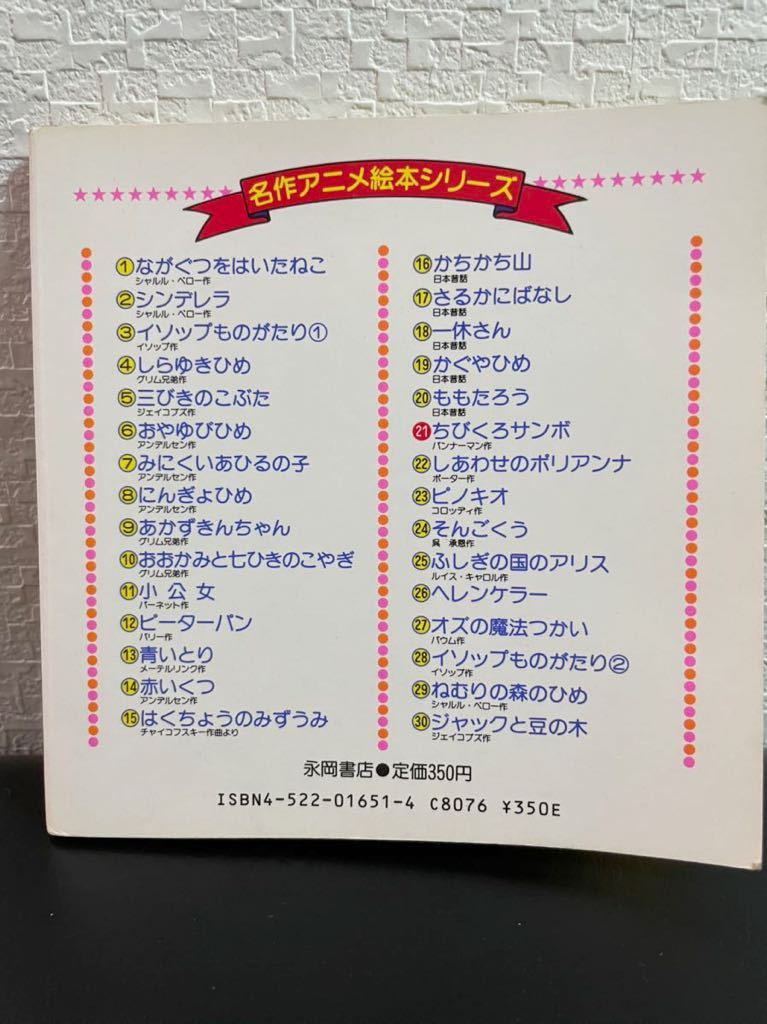 名作アニメ絵本シリーズ
①ながぐつをはいたねこ
シャルル・ペロー作
②シンデレラ
シャルル・ペロー作
③イソップものがたり①
イソップ作
④しらゆきひめ
グリム兄弟作
⑤三びきのこぶた
ジェイコブズ作
⑥おやゆびひめ
アンデルセン作
⑦みにくいあひるの子
アンデルセン作
⑧にんぎょひめ
アンデルセン作
⑨あかずきんちゃん
グリム兄弟作
⑩おおかみと七ひきのこやぎ
グリム兄弟作
⑪小公女
バーネット作
⑫ピーターパン
バリー作
⑬青いとり
メーテルリンク作
⑭赤いくつ
アンデルセン作
⑮はくちょうのみずうみ
チャイコフスキー作曲より
⑯かちかち山
日本昔話
⑰さるかにばなし
日本昔話
⑱一休さん
日本昔話
⑲かぐやひめ
日本昔話
⑳ももたろう
日本昔話
㉑ちびくろサンボ
バンナーマン作
㉒しあわせのポリアンナ
ポーター作
㉓ピノキオ
コロッディ作
㉔そんごくう
呉 承恩作
㉕ふしぎの国のアリス
ルイス・キャロル作
㉖ヘレンケラー
㉗オズの魔法つかい
バウム作
㉘イソップものがたり②
イソップ作
㉙ねむりの森のひめ
シャルル・ペロー作
㉚ジャックと豆の木
ジェイコブズ作
永岡書店●定価350円
ISBN4-522-01651-4 C8076 ¥350E